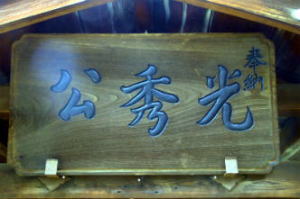 奉納
光秀公